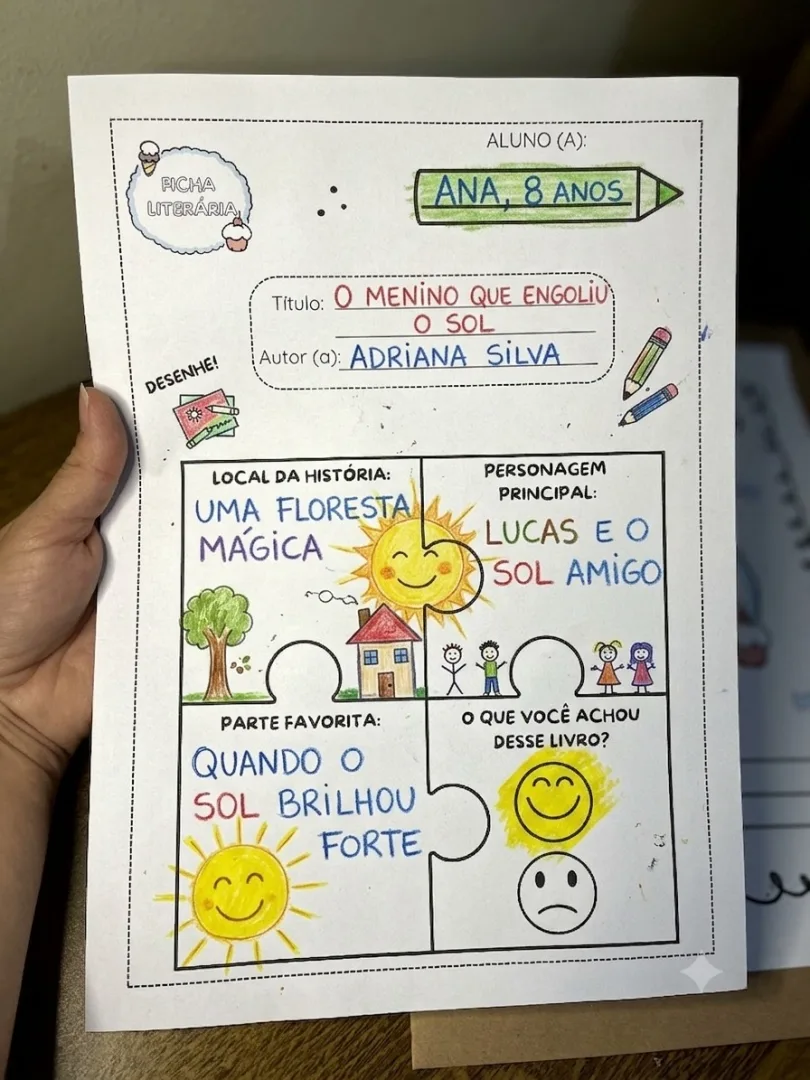 FICHA
LITERÁRIA
ALUNO (A):
ANA, 8 ANOS
Título: O MENINO QUE ENGOLIU
O SOL
Autor (a): ADRIANA SILVA
DESENHE!
LOCAL DA HISTÓRIA:
UMA FLORESTA
MÁGICA
PERSONAGEM
PRINCIPAL:
LUCAS E O
SOL AMIGO
PARTE FAVORITA:
QUANDO O
SOL BRILHOU
FORTE
O QUE VOCÊ ACHOU
DESSE LIVRO?